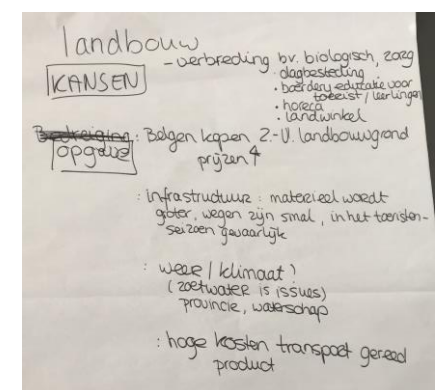 landbouw
KANSEN
- verbreding bv. biologisch, zorg
• dagbesteding
• boerderij educatie voor
toerist / leerlingen
• horeca
• landwinkel
Bedreiging : Belgen kopen Z.-Vl. landbouwgrond
opgave
prijzen ↑
: infrastructuur : materieel wordt
groter, wegen zijn smal, in het toeristen-
seizoen gevaarlijk
: weer / klimaat ?
(zoetwater is issues)
provincie, waterschap
: hoge kosten transport gereed
product